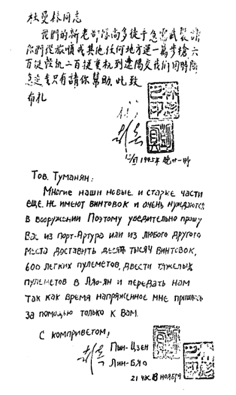 杜曼揚同志
我們的新老部隊尚多徒手急需武裝請
你們從旅順或其他任何地方運一萬步槍六
百挺輕机二百挺重机到遼陽交我們因時間
只有請你幫助。此致
布礼
Тов. Туманян:
Многие наши новые и старые части
еще не имеют винтовок и очень нуждаются
в вооружении Поэтому убедительно прошу
Вас из порт-Артура или из любого другого
места доставить десять тысяч винтовок,
600 легких пулеметов, двести тяжелых
пулеметов в Ляо-ян и передать нам
так как время напряженное мне пришлось
за помощью только к Вам.
С комприветом:
Пын-Цзен
Лин-Бяо
21 час. 8 ноября